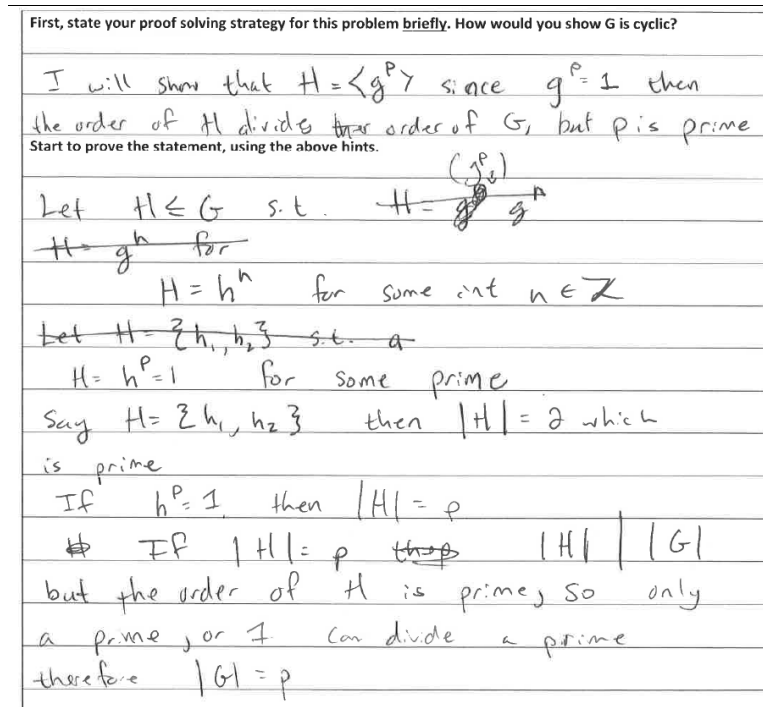 First, state your proof solving strategy for this problem briefly. How would you show G is cyclic?
I will show that H = <g^p> since g^p = 1 then
the order of H divides order of G, but p is prime
Start to prove the statement, using the above hints.
(g^p)
Let H ≤ G s.t. H = g g^p
H = g^n for
H = h^n for some int n ∈ Z
Let H = {h₁, h₂} s.t. a
H = h^p = 1 for some prime
Say H = {h₁, h₂} then |H| = 2 which
is prime
If h^p = 1 then |H| = p
If |H| = p |H| | |G|
but the order of H is prime, so only
a prime, or 1 can divide a prime
therefore |G| = p